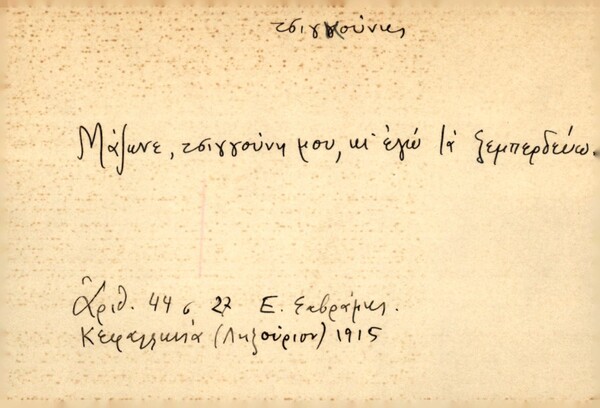 τσιγγούνης
Μάζωνε, τσιγγούνη μου, κι' ἐγώ τά ξεμπερδεύω.
Ἀριθ. 44 σ 27 Ε. Σαβράμης.
Κεφαλληνία (Ληξούριον) 1915